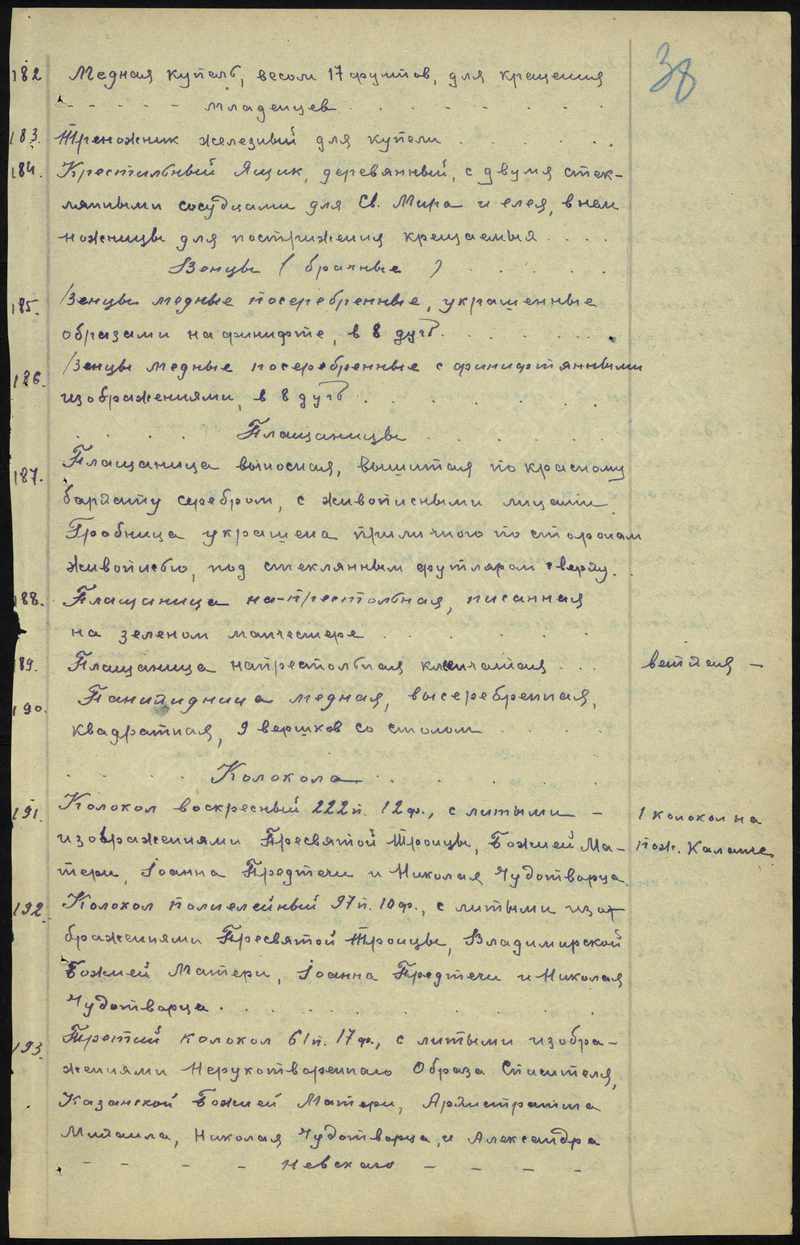 38
182 Медная купель, весом 17 фунтов, для крещения
- - - - - младенцев . . . . . . . .
183. Треножник железный для купели . . . . . .
184. Крестильный ящик, деревянный, с двумя стек-
лянными сосудцами для Св. Мира и елея, в нем
ножницы для пострижения крещаемыя . . . .
Венцы ( брачные ) . . . . . .
185. Венцы медные посеребренные, украшенные
образами на финифте, в 8 дуг . . . . . .
186. Венцы медные посеребренные с финифтянными
изображениями, в 8 дуг . . . . . . .
. . . . Плащаницы . . . . . .
187. Плащаница выносная, вышитая по красному
бархату серебром, с живописными лицами
Гробница украшена прилично по сторонам
живописью, под стеклянным футляром сверху.
188. Плащаница на-престольная, писанная
на зеленом манчестере . . . . . . .
89. Плащаница напрестольная клеенчатая . . . ветхая -
190. Панихидница медная, высеребренная,
квадратная, 9 вершков со столом . . . .
. . . . Колокола . . . . . .
191. Колокол воскресный 222 п. 12 ф., с литыми - 1 колокол на
изображениями Пресвятой Троицы, Божией Ма- пож. Каланче
тери, Іоанна Предтечи и Николая Чудотворца.
192 Колокол полиелейный 97 п. 10 ф., с литыми изо
бражениями Пресвятой Троицы, Владимирской
Божией Матери, Іоанна Предтечи и Николая
Чудотворца . . . . . . . . .
193. Третий колокол 61 п. 17 ф., с литыми изобра-
жениями Нерукотвореннаго Образа Спасителя,
Казанской Божией Матери, Архистратига
Михаила, Николая Чудотворца, и Александра
- - - - Невскаго - - - -